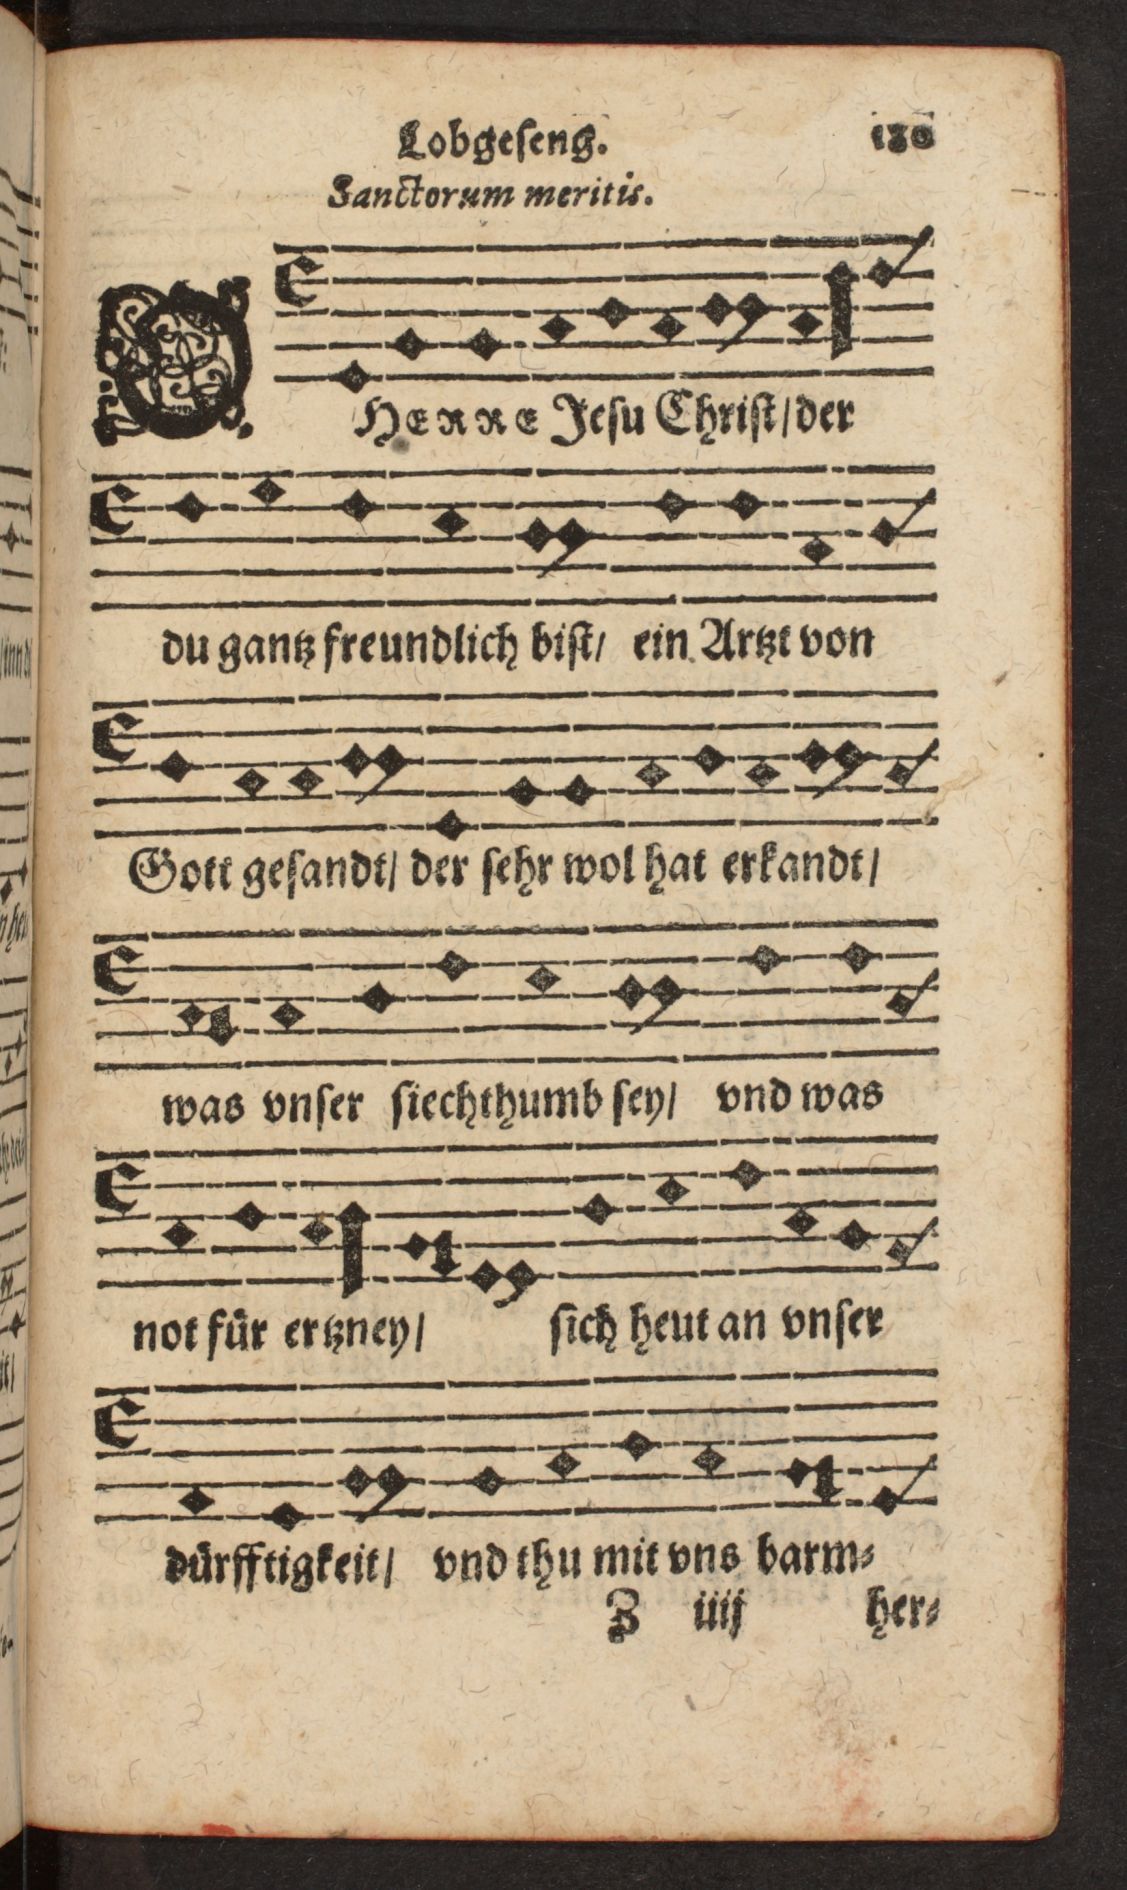 Lobgeseng. 180
Sanctorum meritis.
O HERRE Jesu Christ/ der
du gantz freundlich bist/ ein Artzt von
Gott gesandt/ der sehr wol hat erkandt/
was vnser siechthumb sey/ vnd was
not für ertzney/ sich heut an vnser
dürfftigkeit/ vnd thu mit vns barm⸗
Z iiij her⸗